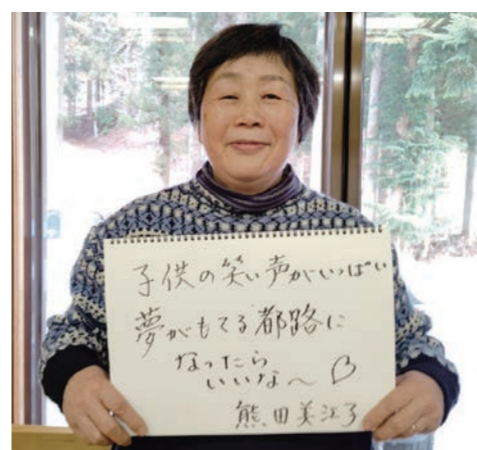 子供の笑い声がいっぱい
夢がもてる都路に
なったら
いいな〜♡
熊田美江子